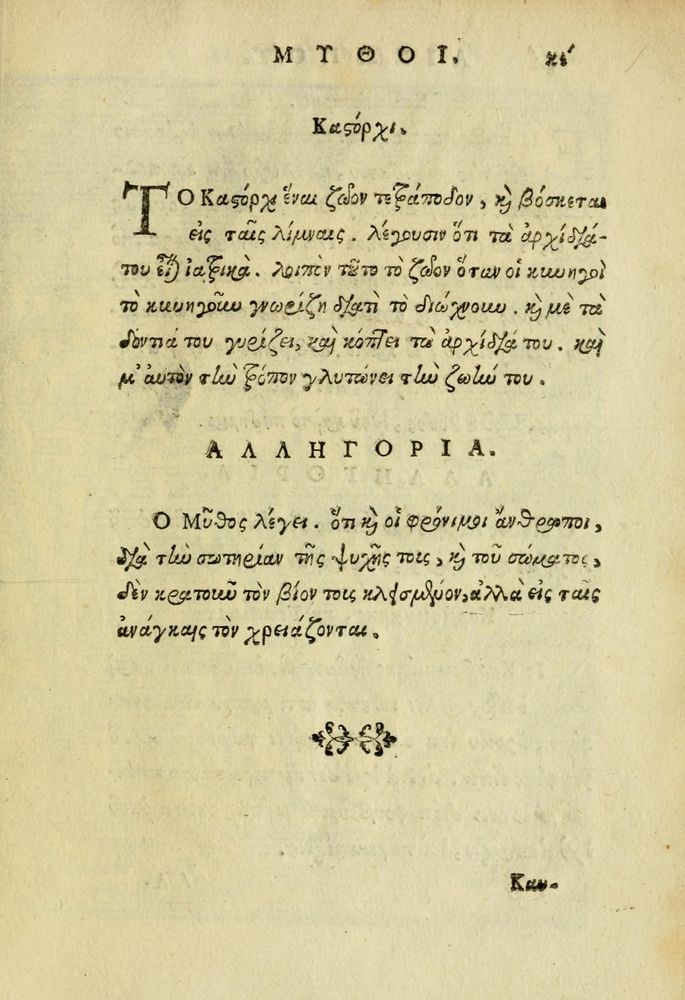 ΜΥΘΟΙ. κε´
Καστόρχι.
ΤΟ Καστόρχι ἔναι ζῶον τετράποδον, κὶ βόσκεται
εἰς ταῖς λίμναις. λέγουσιν ὅτι τὰ ἀρχίδιά-
του εἶναι ἰατρικὰ. λοιπὸν τοῦτο τὸ ζῶον ὅταν οἱ κυνηγοὶ
τὸ κυνηγοῦν γνωρίζη διατὶ τὸ διώχνουν. κὶ μὲ τὰ
δόντιά του γυρίζει, καὶ κόπτει τὰ ἀρχίδιά του. καὶ
μ' αὐτὸν τὴν τρόπον γλυτώνει τὴν ζωήν του.
ΑΛΛΗΓΟΡΙΑ.
Ο Μῦθος λέγει. ὅτι κὶ οἱ φρόνιμοι ἄνθρωποι,
διὰ τὴν σωτηρίαν τῆς ψυχῆς τοις, κὶ τοῦ σώματος,
δὲν κρατοῦν τὸν βίον τοις κλεισμένον, ἀλλὰ εἰς ταῖς
ἀνάγκαις τὸν χρειάζονται.
Καυ-